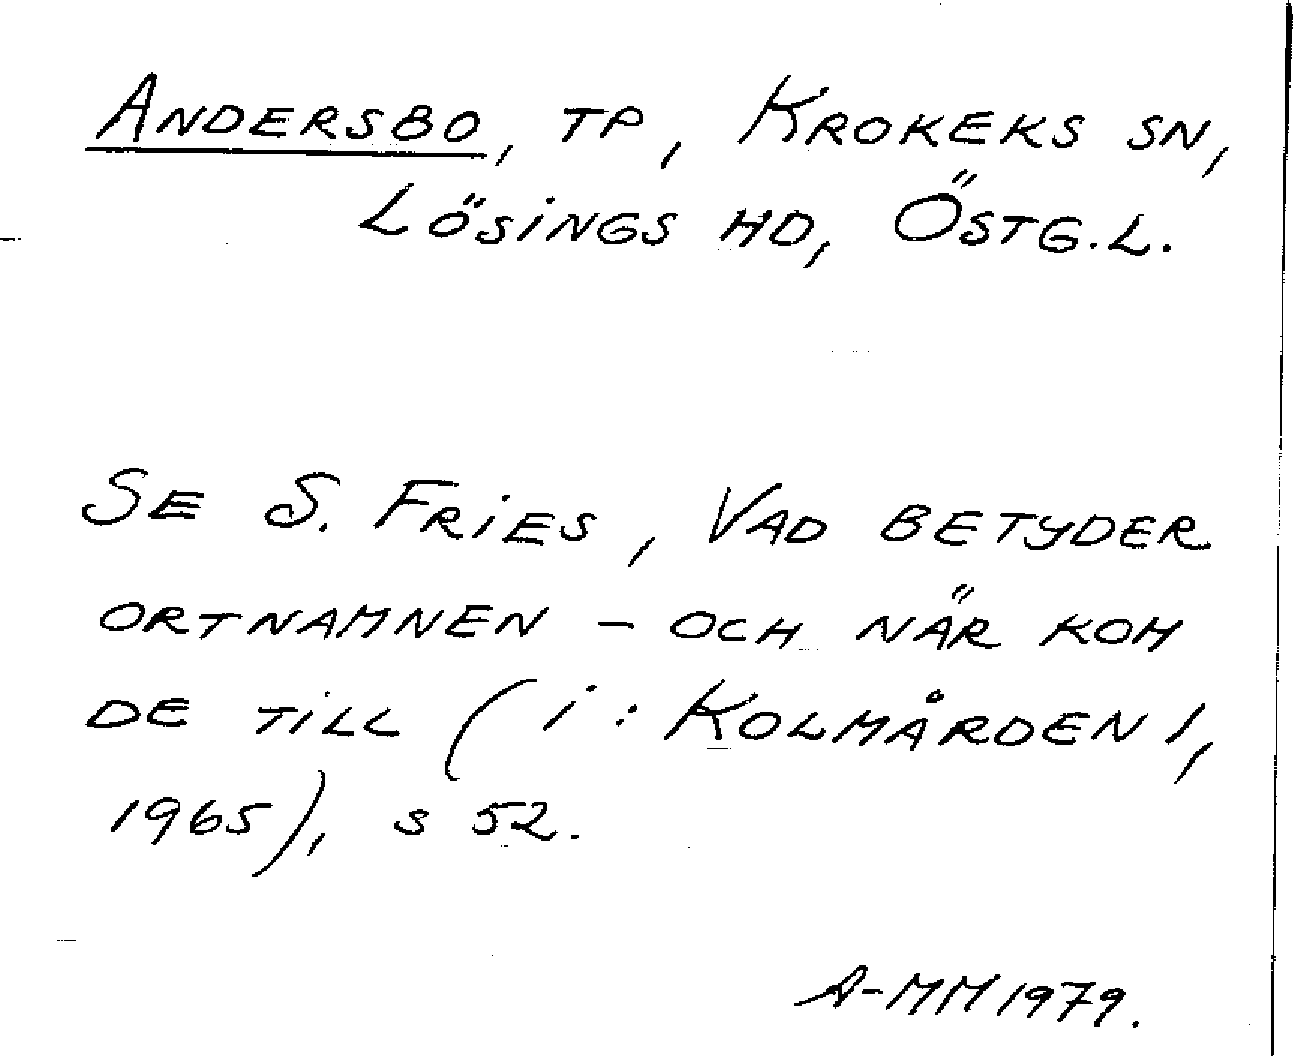 ANDERSBO, TP, KROKEKS SN,
LÖSINGS HD, ÖSTG.L.
SE S. FRIES, VAD BETYDER
ORTNAMNEN – OCH NÄR KOM
DE TILL (i: KOLMÅRDEN 1,
1965), s 52.
A-MM 1979.